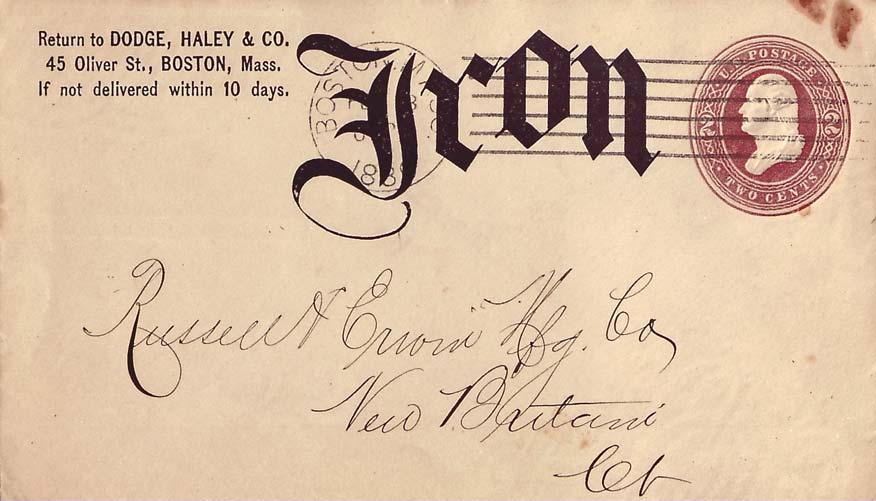 Return to DODGE, HALEY & CO.
45 Oliver St., BOSTON, Mass.
If not delivered within 10 days.
Iron
BOSTON. M
188
U.S. POSTAGE
2 2
TWO CENTS
Russell & Erwin Mfg. Co
New Britain
Ct